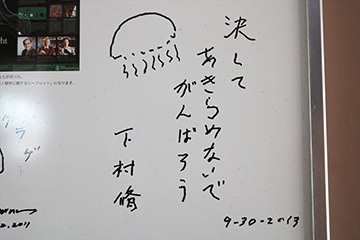 決して
あきらめないで
がんばろう
下村脩
9-30-2013
クラゲ
2011